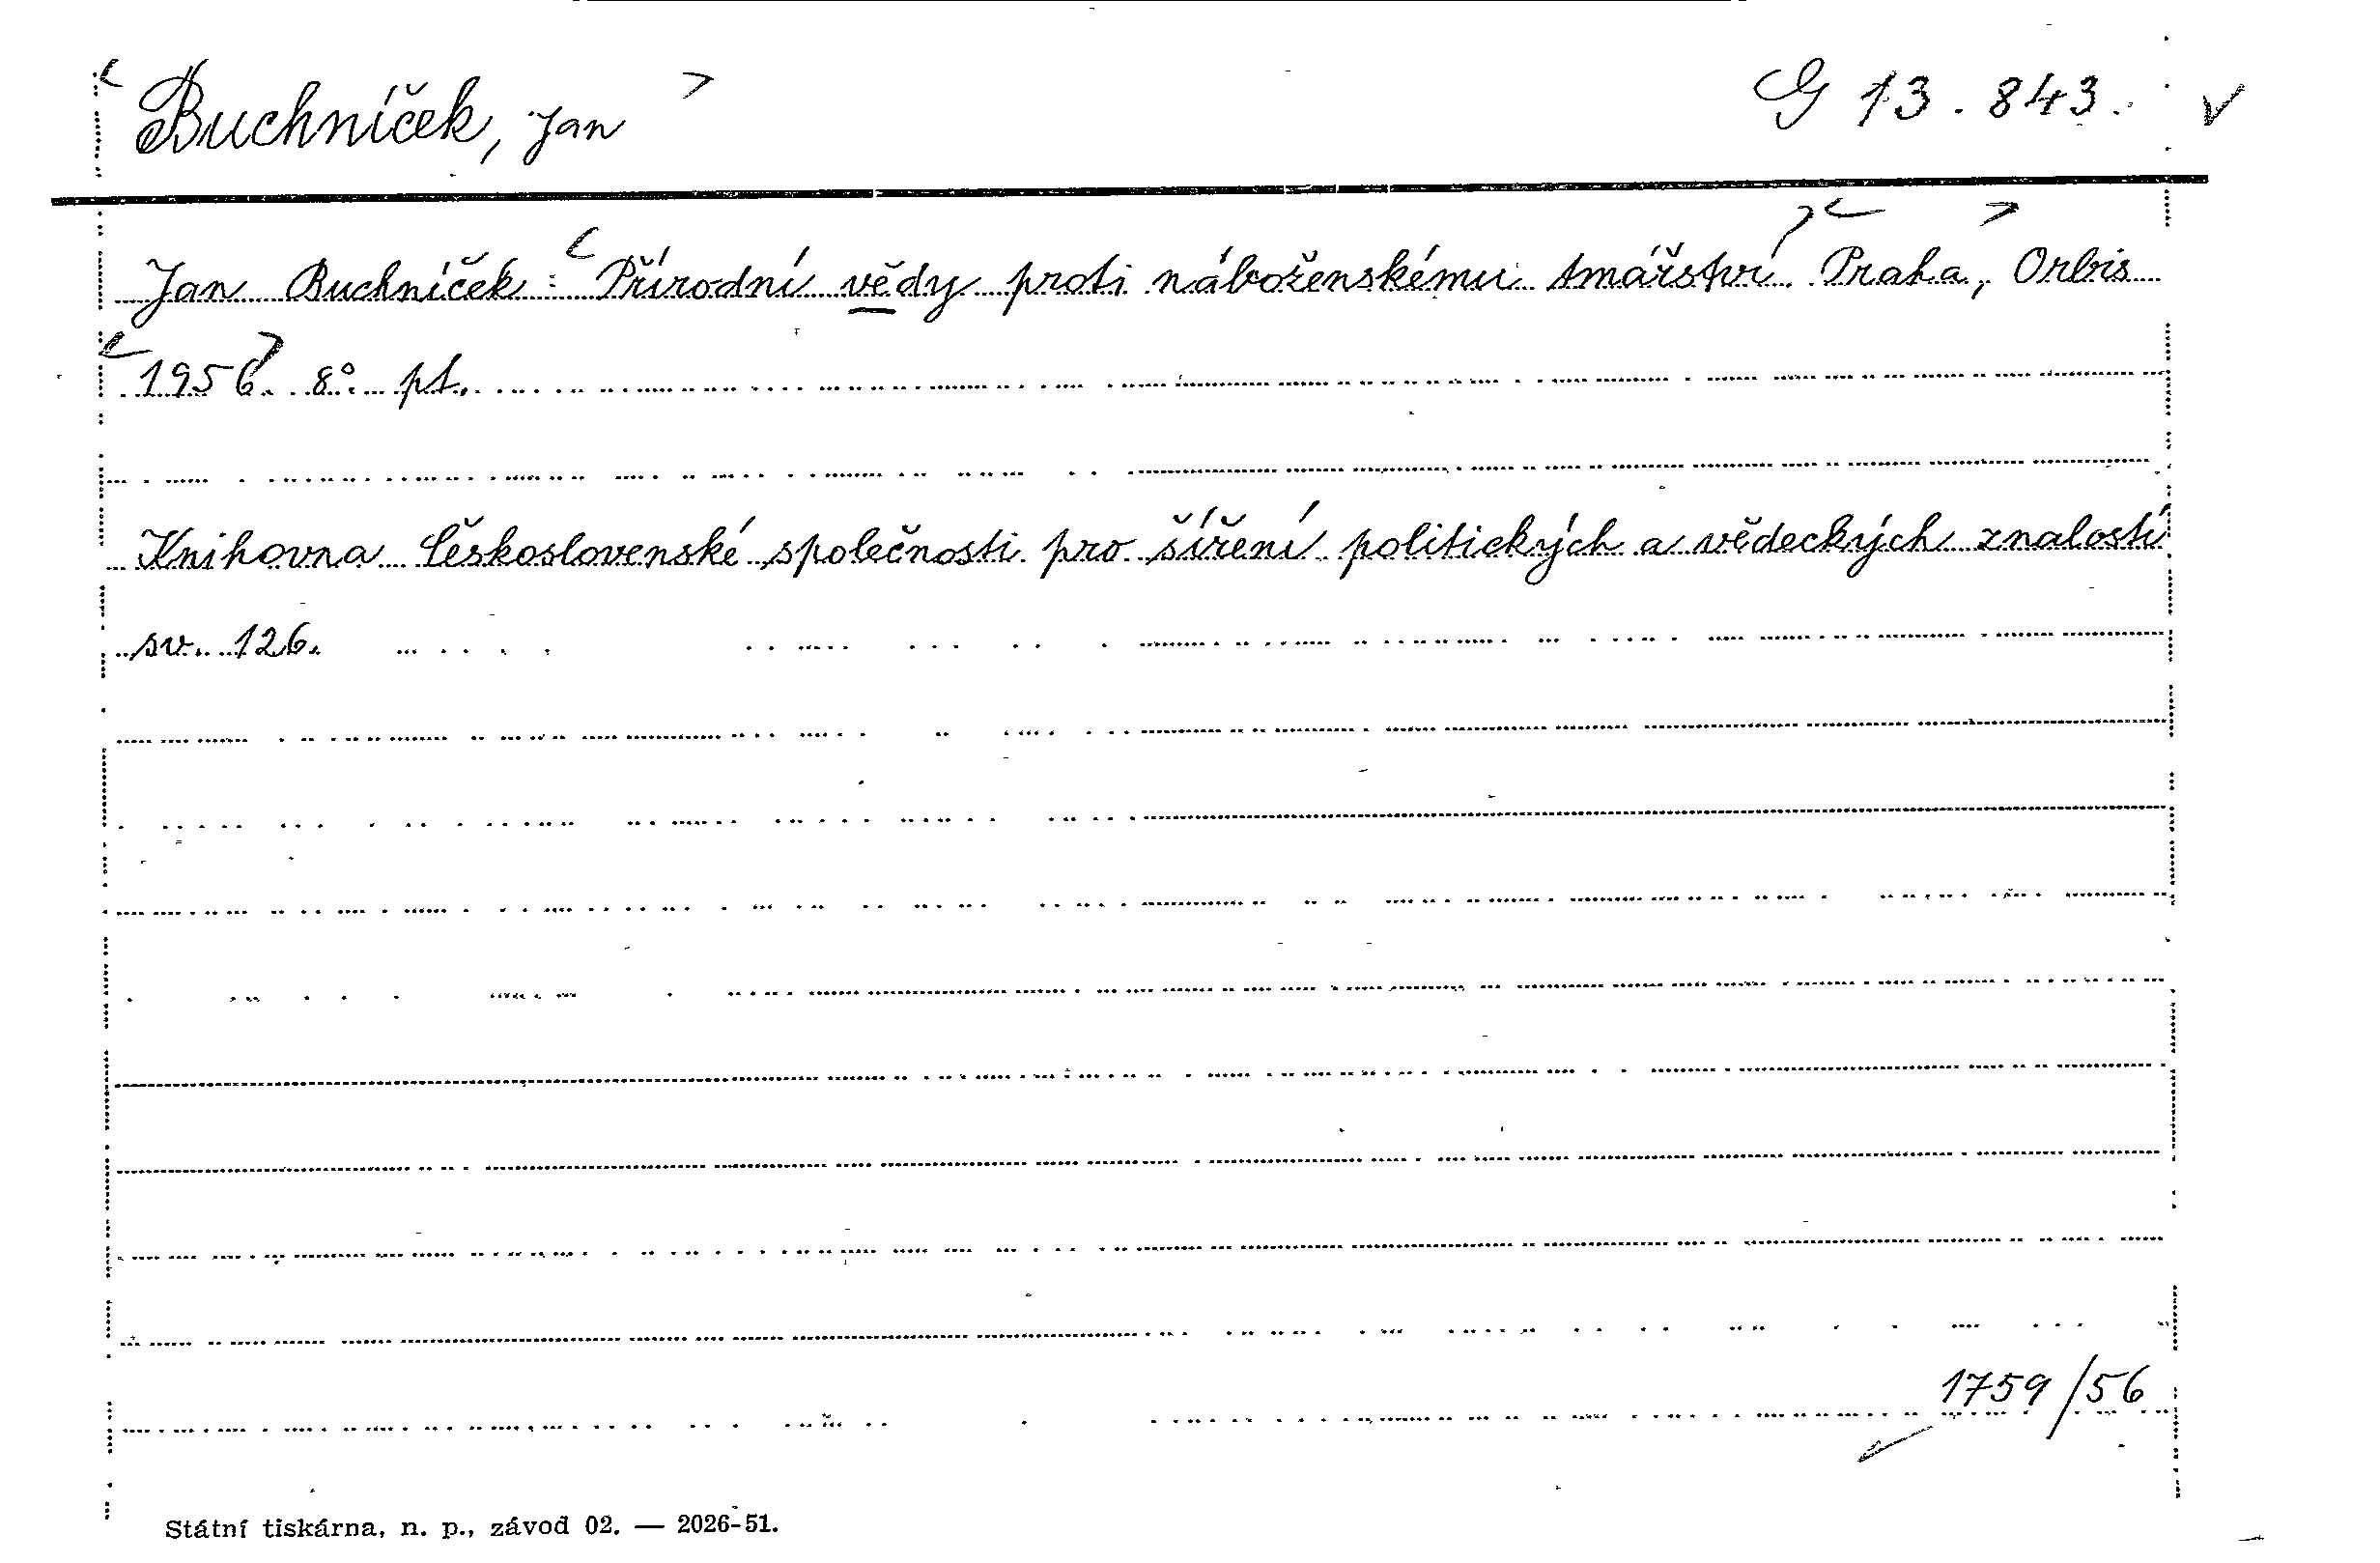 Buchníček, Jan G 13.843.
Jan Buchníček: Přírodní vědy proti náboženskému tmářství. Praha, Orbis
1956. 8°. pt.
Knihovna Československé společnosti pro šíření politických a vědeckých znalostí
sv. 126.
1759/56
Státní tiskárna, n. p., závod 02. — 2026-51.